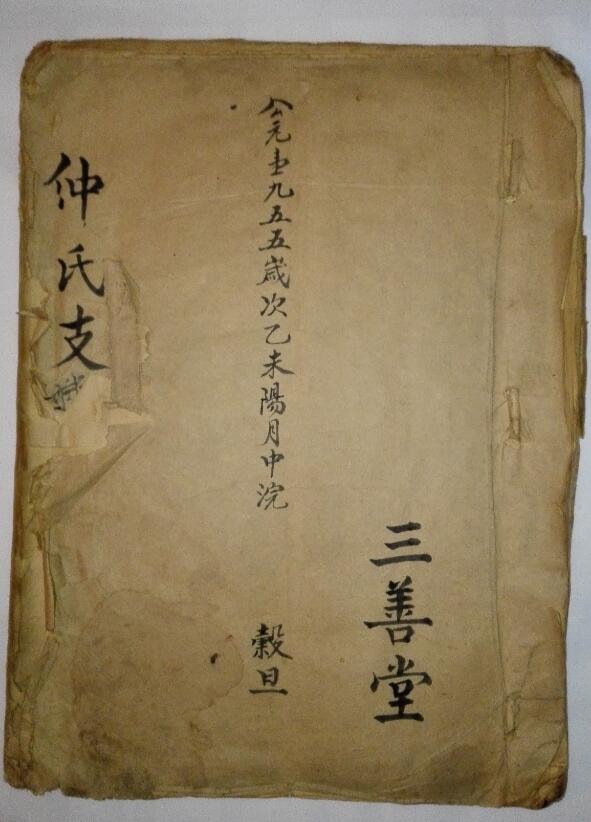 三善堂
公元壹九五五歲次乙未陽月中浣
穀旦
仲氏支